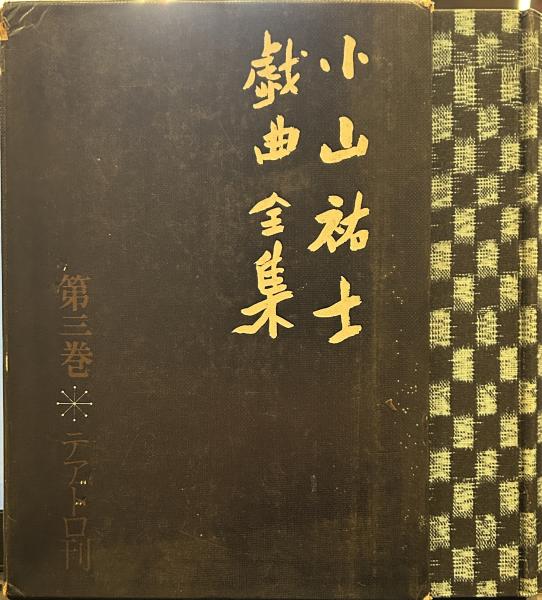 小山祐士
戯曲全集
第三巻 テアトロ刊